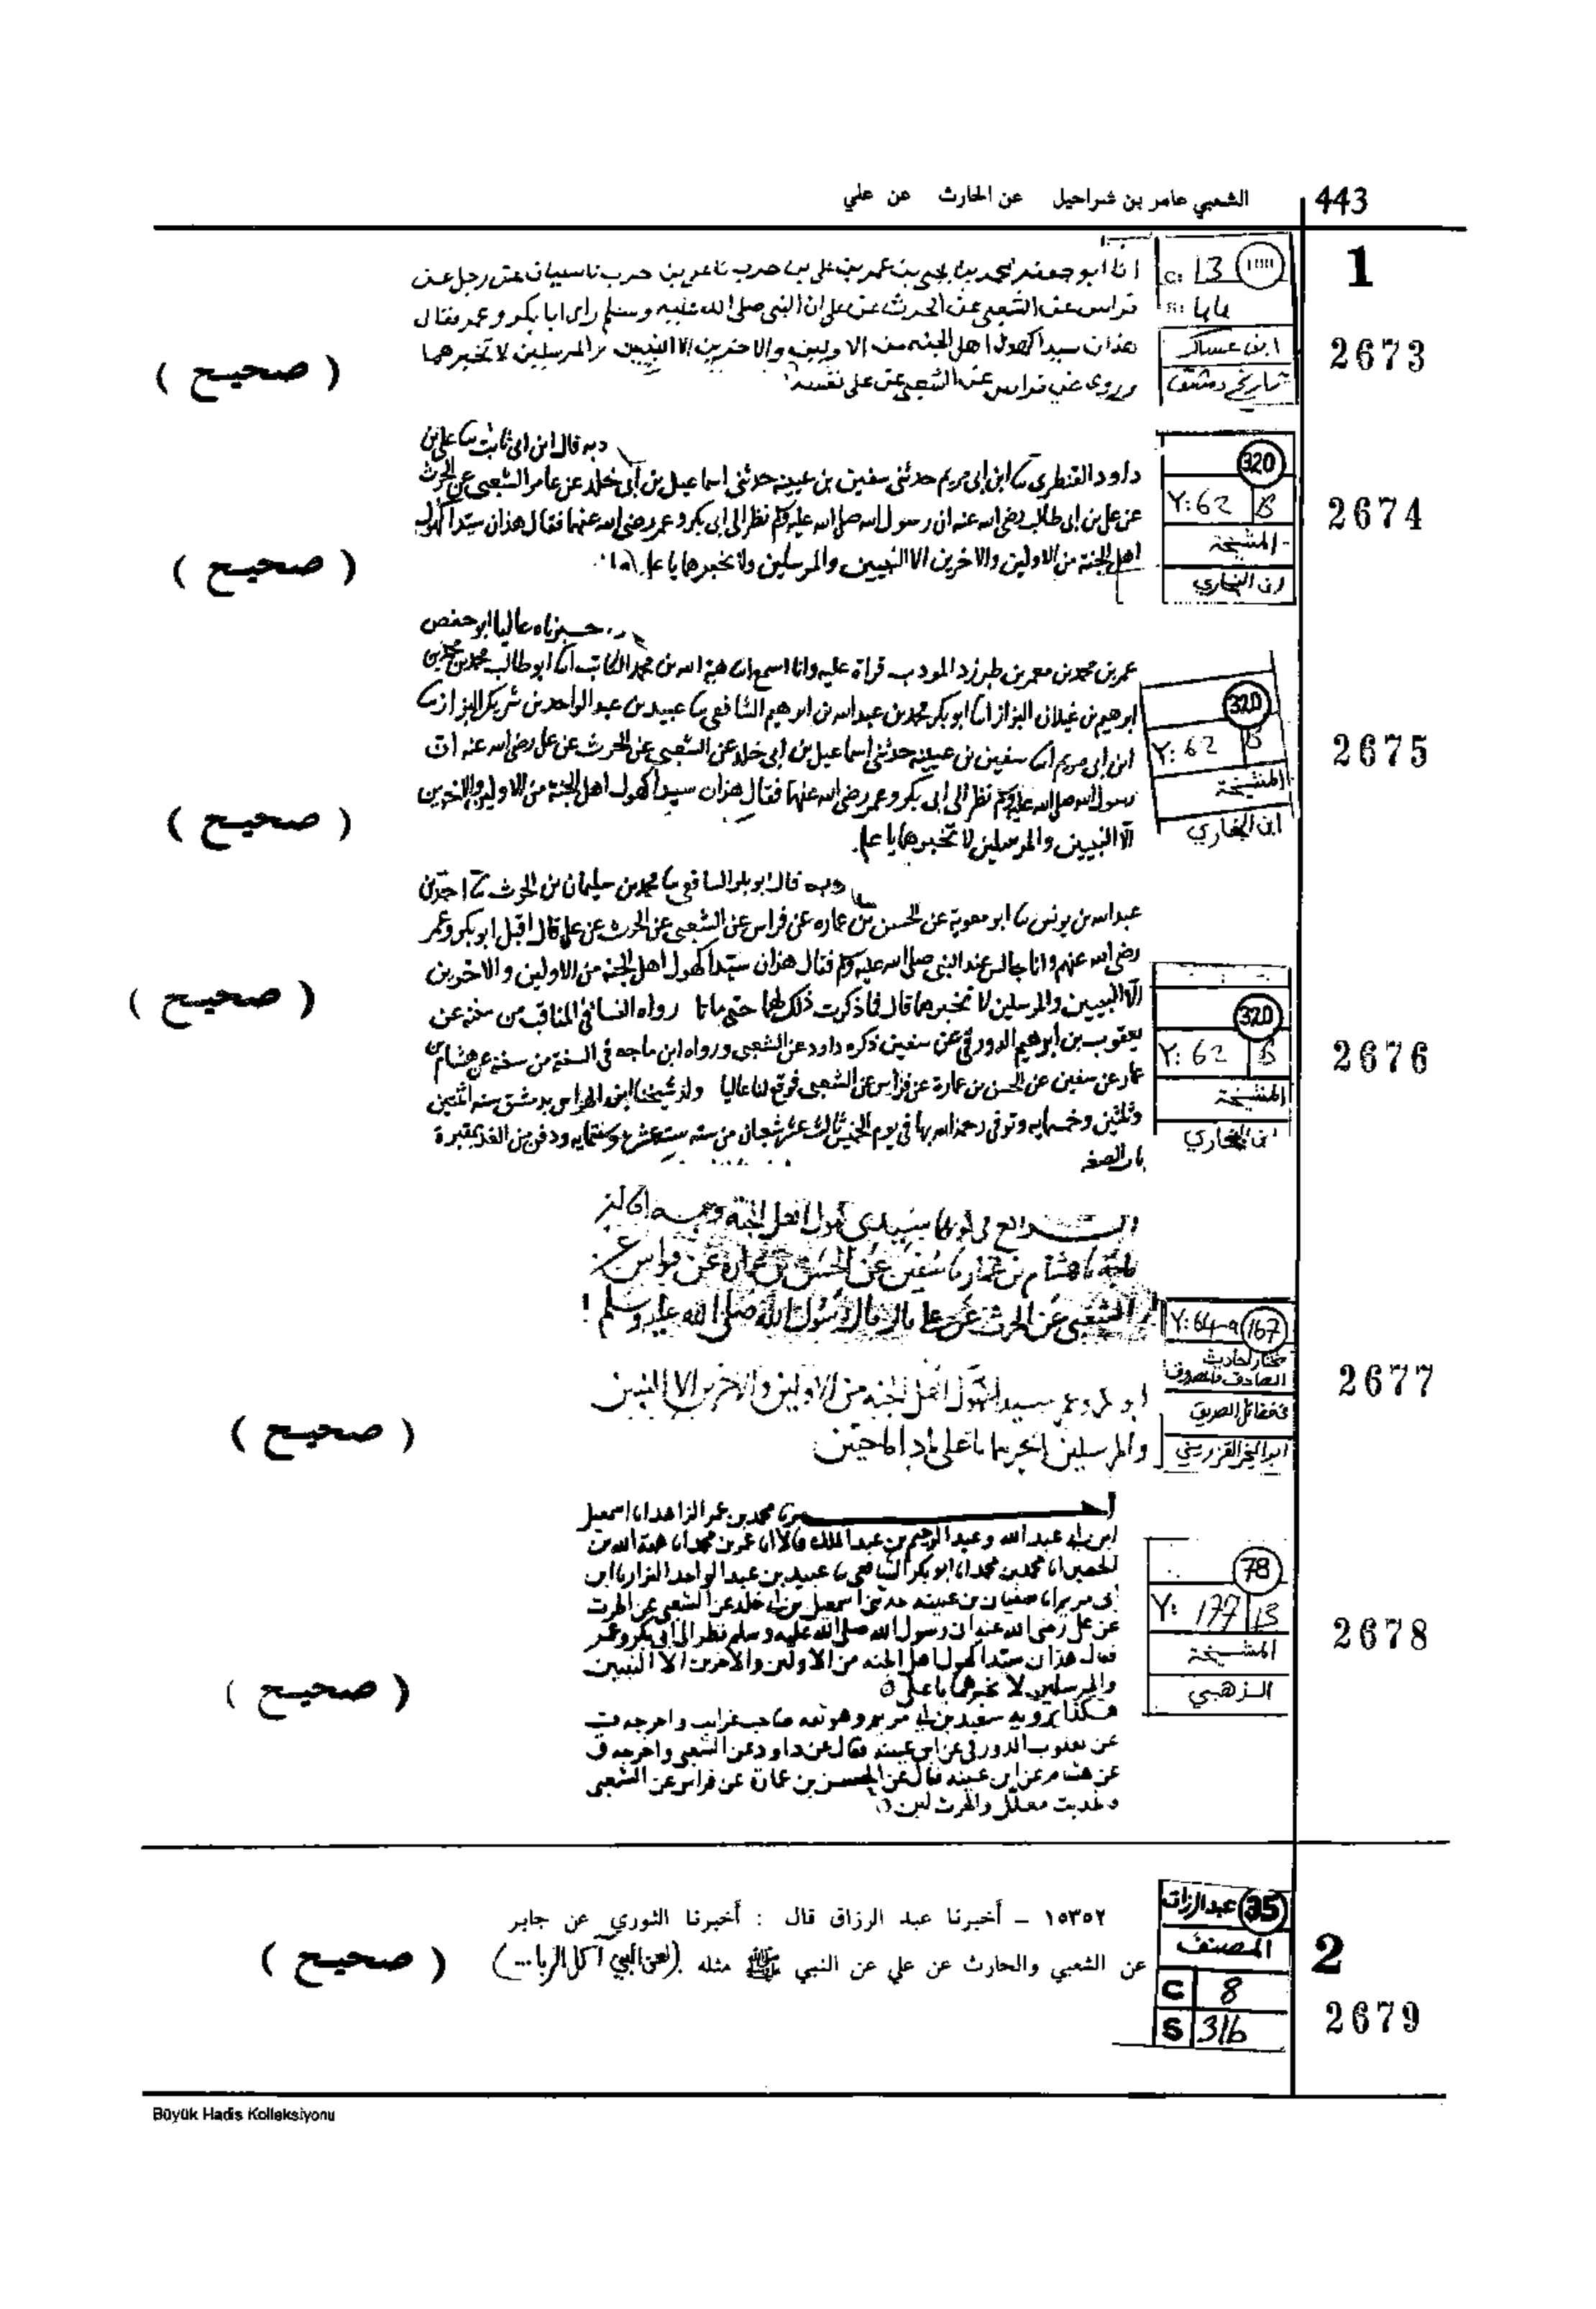 443
الشعبي عامر بن شراحيل عن الحارث عن علي
1
2673
C: 13
ابن عساكر
تاريخ دمشق
انا ابو جعفر
فراس عن الشعبي عن الحرث عن علي ان النبي صلى الله عليه وسلم راى ابا بكر وعمر فقال
هذان سيدا كهول اهل الجنة من الاولين والاخرين الا النبيين والمرسلين لا تخبرهما
وروى عن فراس عن الشعبي عن علي نفسه
( صحيح )
2674
320
Y: 62 B
المشيخة
ابن البخاري
وبه قال ابن ابي ثابت ثنا علي بن
داود القنطري ثنا ابن ابي مريم حدثني سفين بن عيينه حدثني اسماعيل بن ابي خلد عن عامر الشعبي عن الحرث
عن علي بن ابي طالب رضي الله عنه ان رسول الله صلى الله عليه وسلم نظر الى ابي بكر وعمر رضي الله عنهما فقال هذان سيدا كهول
اهل الجنة من الاولين والاخرين الا النبيين والمرسلين ولا تخبرهما يا علي
( صحيح )
2675
320
Y: 62 B
المشيخة
ابن البخاري
عاليا ابو حفص
عمر بن محمد بن معمر بن طبرزد المودب قراة عليه وانا اسمع هبة الله بن محمد الكاتب انا ابو طالب محمد بن محمد بن
ابرهيم بن غيلان البزاز انا ابو بكر محمد بن عبد الله بن ابرهيم الشافعي ثنا عبيد بن عبد الواحد بن شريك البزاز ثنا
ابن ابي مريم انا سفين بن عيينه حدثني اسماعيل بن ابي خلد عن الشعبي عن الحرث عن علي رضي الله عنه ان
رسول الله صلى الله عليه وسلم نظر الى ابي بكر وعمر رضي الله عنهما فقال هذان سيدا كهول اهل الجنة من الاولين والاخرين
الا النبيين والمرسلين لا تخبرهما يا علي
( صحيح )
2676
320
Y: 62 B
المشيخة
ابن البخاري
وبه قال ابو بكر الشافعي ثنا محمد بن سليمان بن الحرث ثنا احمد بن
عبد الله بن يونس ثنا ابو معوية عن الحسن بن عماره عن فراس عن الشعبي عن الحرث عن علي قال اقبل ابو بكر وعمر
رضي الله عنهم وانا جالس عند النبي صلى الله عليه وسلم فقال هذان سيدا كهول اهل الجنة من الاولين والاخرين
الا النبيين والمرسلين لا تخبرهما قال فما ذكرت ذلك لهما حتى ماتا رواه النسائي في المناقب من سننه عن
يعقوب بن ابرهيم الدورقي عن سفين ذكره داود عن الشعبي ورواه ابن ماجه في السنة من سننه عن هشام بن
عمار عن سفين عن الحسن بن عمارة عن فراس عن الشعبي فوقع لنا عاليا ولد شيخنا ابن الهراس بدمشق سنه اثنتين
وثلثين وخمسمايه وتوفي رحمه الله بها في يوم الخميس ثالث عشر شعبان من سنه ست عشرة وستمايه ودفن من الغد بمقبرة
باب الصغير
( صحيح )
2677
Y: 64-a 167
مختار احاديث
الصادق المصدوق
في فضائل الصديق
ابو الخير القزويني
سيدي كهول اهل الجنة
هشام بن عمار ثنا سفين عن الحسن بن عمارة عن فراس عن
الشعبي عن الحرث عن علي قال قال رسول الله صلى الله عليه وسلم
ابو بكر وعمر سيدا كهول اهل الجنه من الاولين والاخرين الا النبيين
والمرسلين
( صحيح )
2678
78
Y: 177 B
المشيخة
الذهبي
محمد بن عمر الزاهد انا اسمعيل
ابن عبد الله وعبد الرحيم بن عبد الملك قالا انا عمر بن محمد انا هبة الله بن
الحصين انا محمد بن محمد انا ابو بكر الشافعي ثنا عبيد بن عبد الواحد البزار انا ابن
ابي مريم انا سفيان بن عيينه حدثني اسمعيل بن ابي خلد عن الشعبي عن الحرث
عن علي رضي الله عنه ان رسول الله صلى الله عليه وسلم نظر الى ابي بكر وعمر
فقال هذان سيدا كهول اهل الجنه من الاولين والاخرين الا النبيين
والمرسلين لا تخبرهما يا علي
هكذا يرويه سعيد بن ابي مريم وهو ثقه صاحب غرايب واخرجه ت
عن يعقوب الدورقي عن ابن عيينه فقال عن داود عن الشعبي واخرجه ق
عن هشام عن ابن عيينه فقال عن الحسن بن عمارة عن فراس عن الشعبي
والحديث معلل والحرث لين
( صحيح )
2
2679
عبدالرزاق 35
المصنف
C 8
S 316
١٥٣٥٢ – أخبرنا عبد الرزاق قال : أخبرنا الثوري عن جابر
عن الشعبي والحارث عن علي عن النبي ﷺ مثله . (لعن النبي آكل الربا...)
( صحيح )
Büyük Hadis Kolleksiyonu